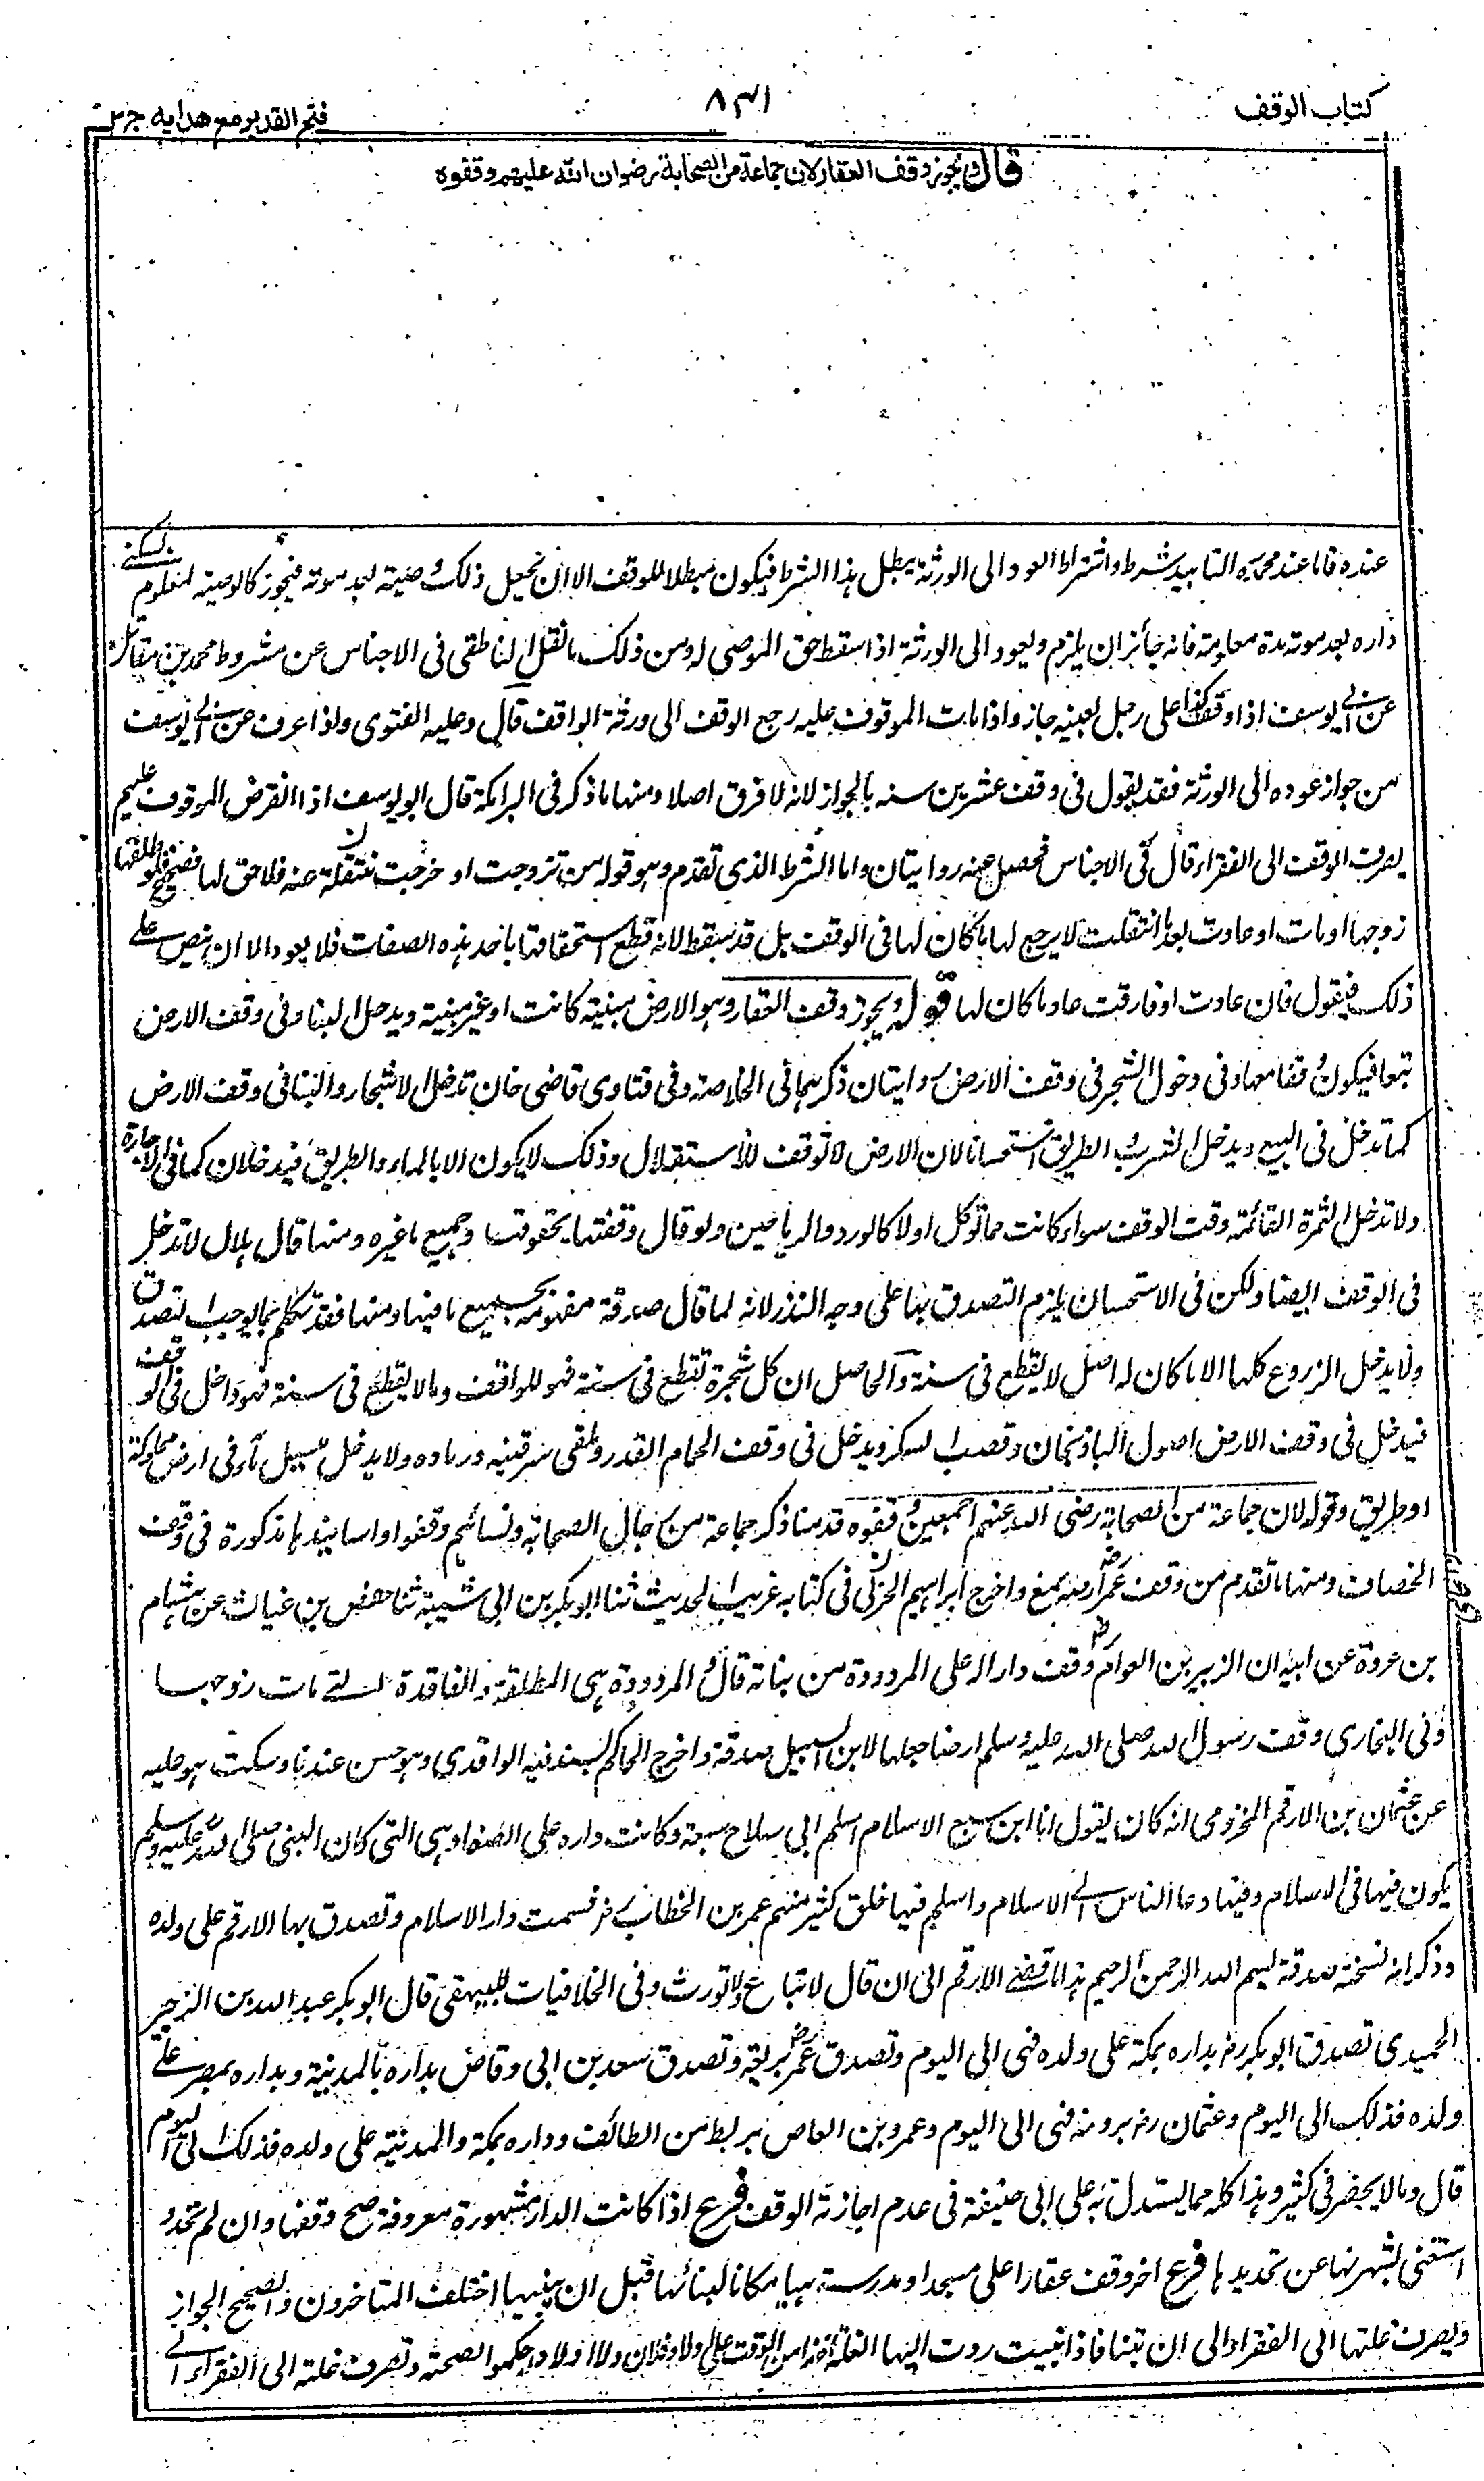 كتاب الوقف
٨٣١
فتح القدير مع هدايه ج٢
قال ويجوز وقف العقار لان جماعة من الصحابة رضوان الله عليهم وقفوه
عنده فاما عند محمد رح التابيد شرط واشتراط العود الى الورثة يبطل هذا الشرط فيكون مبطلا للوقف الا ان يجعل ذلك وصية بعد موته فيجوز كالوصية لمعلوم بسكنى
داره بعد موته مدة معلومة فانه جائز ان يلزم ويعود الى الورثة اذا سقط حق الموصى له ومن ذلك ما نقل الناطفى فى الاجناس عن مشروط محمد بن مقاتل
عن ابى يوسف اذا وقف كذا على رجل بعينه جاز واذا مات الموقوف عليه رجع الوقف الى ورثة الواقف قال وعليه الفتوى ولذا عرف عن ابى يوسف
من جواز عوده الى الورثة فقد يقول فى وقف عشرين سنه بالجواز لانه لا فرق اصلا ومنها ما ذكر فى البرامكة قال ابو يوسف اذا انقرض الموقوف عليهم
يصرف الوقف الى الفقراء قال فى الاجناس فحصل عنه روايتان واما الشرط الذى تقدم وهو قوله من تزوجت او خرجت منتقلة عنه فلا حق لها فصحيح فلو طلقها
زوجها او مات او عادت بعد ما انتقلت لا يرجع لها ما كان لها فى الوقف بل قد سقط لانه قطع استحقاقها باحد هذه الصفات فلا يعود الا ان ينص على
ذلك فيقول فان عادت او فارقت عاد ما كان لها قوله ويجوز وقف العقار وهو الارض مبنية كانت او غير مبنية ويدخل البناء فى وقف الارض
تبعا فيكون وقفا معها وفى دخول الشجر فى وقف الارض روايتان ذكرهما فى الخلاصة وفى فتاوى قاضى خان تدخل الاشجار والبنا فى وقف الارض
كما تدخل فى البيع ويدخل الشرب والطريق استحسانا لان الارض لا توقف للاستغلال وذلك لا يكون الا بالماء والطريق فيدخلان كما فى الاجارة
ولا تدخل الثمرة القائمة وقت الوقف سواء كانت مما توكل اولا كالورد والرياحين ولو قال وقفتها بحقوقها وجميع ما فيها ومنها قال هلال لا تدخل
فى الوقف ايضا ولكن فى الاستحسان يلزم التصدق بها على وجه النذر لانه لما قال صدقة موقوفة بجميع ما فيها ومنها فقد تكلم بما يوجب التصدق
ولا يدخل الزروع كلها الا ما كان له اصل لا يقطع فى سنة والحاصل ان كل شجرة تقطع فى سنة فهو للواقف وما لا يقطع فى سنة فهو داخل فى الوقف
فيدخل فى وقف الارض اصول الباذنجان وقصب السكر ويدخل فى وقف الحمام القدر وملقى سرقينه ورماده ولا يدخل مسيل ماء فى ارض مملوكة
او طريق وقوله لان جماعة من الصحابة رضى الله عنهم اجمعين وقفوه قدمنا ذكر جماعة من رجال الصحابة ونسائهم وقفوا واسانيدها مذكورة فى وقف
الخصاف ومنها ما تقدم من وقف عمر ارضه بثمغ واخرج ابراهيم الحربى فى كتابه غريب الحديث ثنا ابو بكر بن ابى شيبة ثنا حفص بن غياث عن هشام
بن عروة عن ابيه ان الزبير بن العوام وقف داراله على المردودة من بناته قال والمردودة هى المطلقة والفاقدة التى مات زوجها
وفى البخارى وقف رسول الله صلى الله عليه وسلم ارضا جعلها لابن السبيل صدقة واخرج الحاكم بسند فيه الواقدى وهو حسن عندنا وسكت هو عليه
عن عثمان بن الارقم المخزومى انه كان يقول انا ابن سبع الاسلام اسلم ابى سابع سبعة وكانت داره على الصفا وهى التى كان النبى صلى الله عليه وسلم
يكون فيها فى الاسلام وفيها دعا الناس الى الاسلام واسلم فيها خلق كثير منهم عمر بن الخطاب رض فسميت دار الاسلام وتصدق بها الارقم على ولده
وذكر ان نسخة صدقة بسم الله الرحمن الرحيم هذا ما قضى الارقم الى ان قال لا تباع ولا تورث وفى الخلافيات للبيهقى قال ابو بكر عبد الله بن الزبير
الحميدى تصدق ابو بكر رض بداره بمكة على ولده فهى الى اليوم وتصدق عمر رض بربعه وتصدق سعد بن ابى وقاص بداره بالمدينة وبداره بمصر على
ولده فذلك الى اليوم وعثمان رض برومة فهى الى اليوم وعمرو بن العاص بربط من الطائف وداره بمكة والمدينة على ولده فذلك الى اليوم
قال وما لا يحضرنى كثير وهذا كله مما يستدل به على ابى حنيفة فى عدم اجازته الوقف فرع اذا كانت الدار مشهورة معروفة صح وقفها وان لم تحدد
استغنى لشهرتها عن تحديدها فرع اخر وقف عقارا على مسجد او مدرسة هيأ مكانا لبنائها قبل ان يبنيها اختلف المتاخرون والصحيح الجواز
ويصرف غلتها الى الفقراء الى ان تبنا فاذا بنيت ردت اليها الغلة اخذا من الوقف على اولاد فلان ولا اولاد له حكموا بالصحة وتصرف غلته الى الفقراء الى